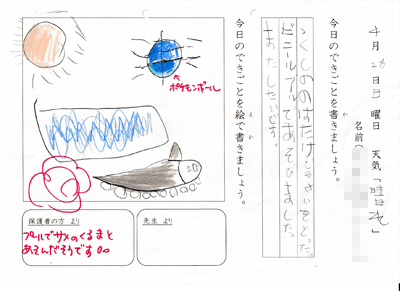 4月28日日曜日 天気「晴れ」
名前(
今日のできごとを書きましょう。
つくしののはたけでやさいをとった。
ビニールプールであそびました。
またしたいです。
今日のできごとを絵で書きましょう。
ポケモンボール
先生 より
保護者の方 より
プールでサメのくるまと
あそんだそうです